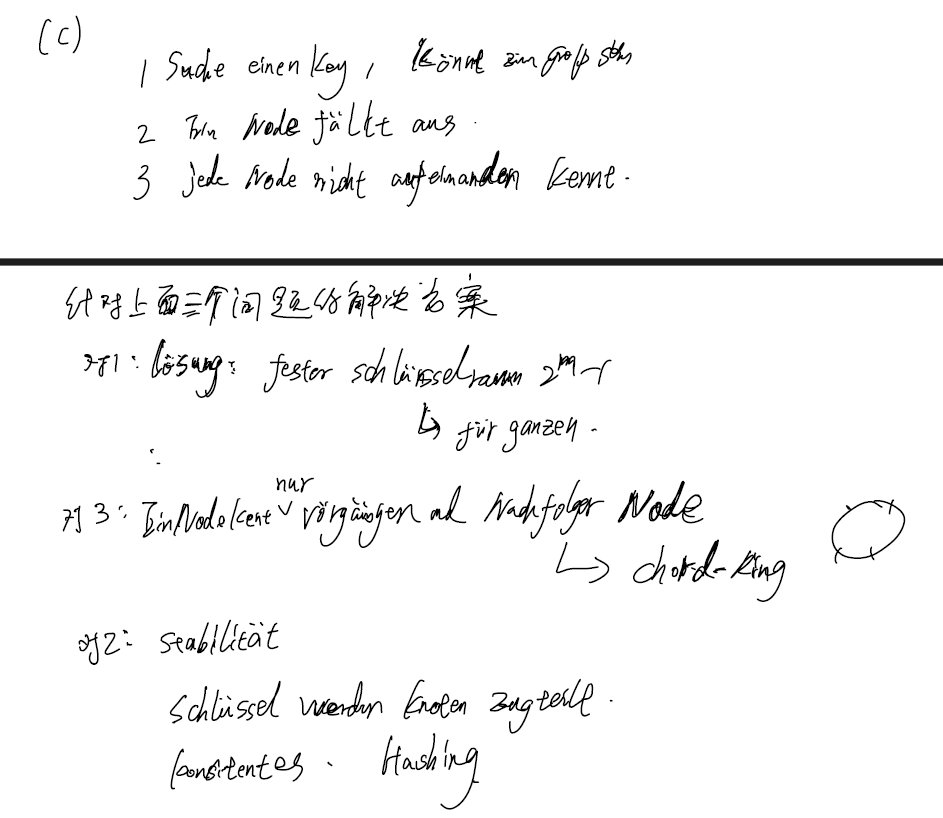 (c)
1 Suche einen Key, könnt zum groß sein
2 Ein Node fällt aus.
3 jede Node nicht aufeinanden kennt.
针对上面三个问题的解决方案
对1: Lösung: fester schlüsselraum 2^m-1
↳ für ganzen.
nur
对3: Ein Node kent ∨ Vörgängen und Nachfolger Node
↳ chord-Ring
对2: Stabilität
Schlüssel werden Knoten zugteilt.
konsitentes. Hashing